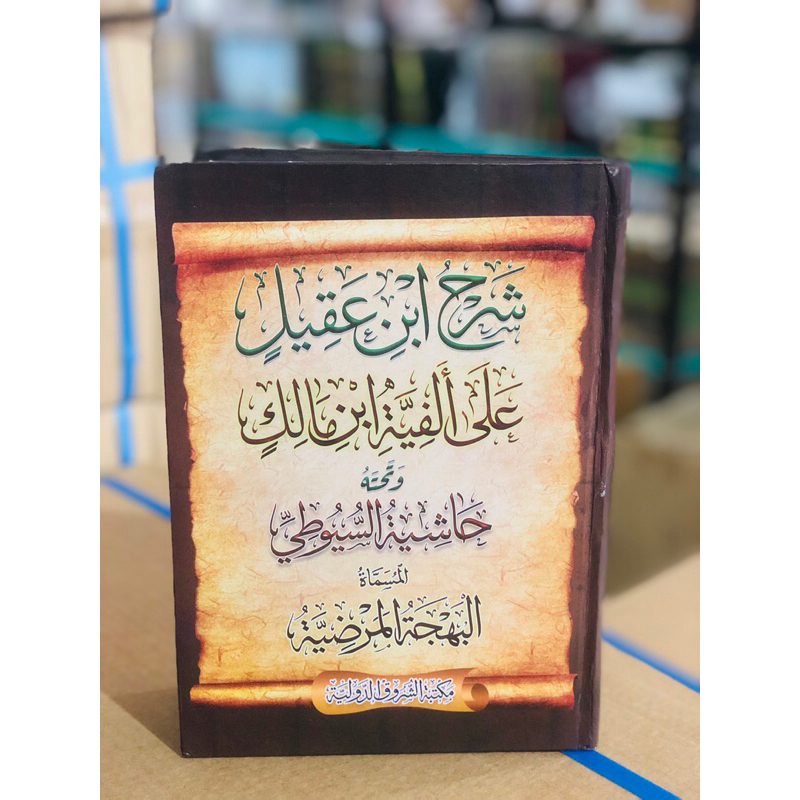 شَرْحُ ابْنِ عَقِيلٍ
عَلَى أَلْفِيَّةِ ابْنِ مَالِكٍ
وَتَحْتَهُ
حَاشِيَةُ السُّيُوطِيِّ
المُسَمَّاةُ
البَهْجَةُ المَرْضِيَّةُ
مكتبة الشروق الدولية